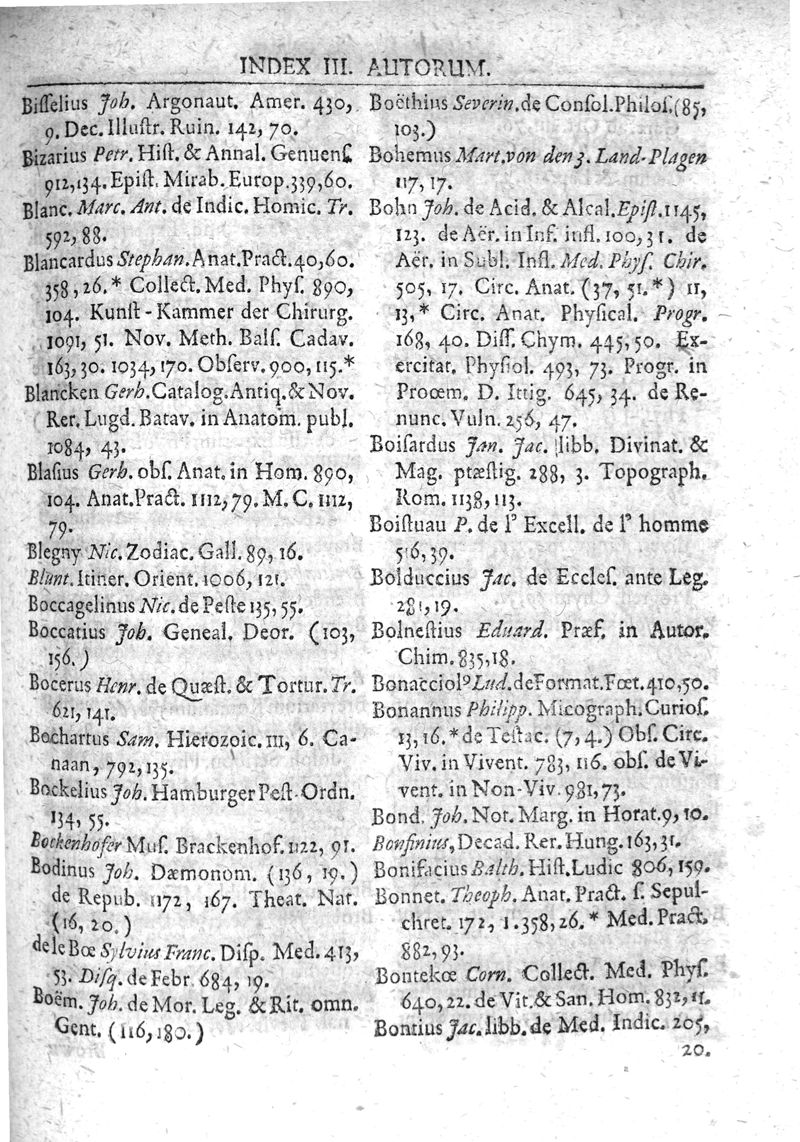 INDEX III. AUTORUM.
Biſſelius Joh. Argonaut. Amer. 430,
9. Dec. Illuſtr. Ruin. 142, 70.
Bizarius Petr. Hiſt. & Annal. Genuenſ.
912,134. Epiſt. Mirab. Europ. 339,60.
Blanc. Marc. Ant. de Indic. Homic. Tr.
592, 88.
Blancardus Stephan. Anat. Pract. 40,60.
358, 26.* Collect. Med. Phyſ. 890,
104. Kunſt-Kammer der Chirurg.
1091, 51. Nov. Meth. Balſ. Cadav.
163, 30. 1034, 170. Obſerv. 900, 115.*
Blancken Gerh. Catalog. Antiq. & Nov.
Rer. Lugd. Batav. in Anatom. publ.
1084, 43.
Blaſius Gerh. obſ. Anat. in Hom. 890,
104. Anat. Pract. 1112, 79. M. C. 1112,
79.
Blegny Nic. Zodiac. Gall. 89, 16.
Blünt. Itiner. Orient. 1006, 121.
Boccagelinus Nic. de Peſte 135, 55.
Boccatius Joh. Geneal. Deor. (103,
156.)
Bocerus Henr. de Quæſt. & Tortur. Tr.
621, 141.
Bochartus Sam. Hierozoic. 111, 6. Ca-
naan, 792, 135.
Bockelius Joh. Hamburger Peſt-Ordn.
134, 55.
Bockenhofer Muſ. Brackenhof. 1122, 91.
Bodinus Joh. Dæmonom. (136, 19.)
de Repub. 1172, 167. Theat. Nat.
(16, 20.)
de le Bœ Sylvius Franc. Diſp. Med. 413,
53. Diſq. de Febr. 684, 19.
Boëm. Joh. de Mor. Leg. & Rit. omn.
Gent. (116, 180.)
Boëthius Severin. de Conſol. Philoſ. (85,
103.)
Bohemus Mart. von den 3. Land-Plagen
117, 17.
Bohn Joh. de Acid. & Alcal. Epiſt. 1145,
123. de Aër. in Inf. infl. 100, 31. de
Aër. in Subl. Infl. Med. Phyſ. Chir.
505, 17. Circ. Anat. (37, 51.*) 11,
13,* Circ. Anat. Phyſical. Progr.
168, 40. Diſſ. Chym. 445, 50. Ex-
ercitat. Phyſiol. 493, 73. Progr. in
Prooem. D. Ittig. 645, 34. de Re-
nunc. Vuln. 256, 47.
Boiſardus Jan. Jac. libb. Divinat. &
Mag. ptæſtig. 288, 3. Topograph.
Rom. 1138, 113.
Boiſtuau P. de l' Excell. de l' homme
516, 39.
Bolduccius Jac. de Eccleſ. ante Leg.
281, 19.
Bolneſtius Eduard. Præf. in Autor.
Chim. 835, 18.
Bonacciolꝰ Lud. de Format. Fœt. 410, 50.
Bonannus Philipp. Micograph. Curioſ.
13, 16.* de Teſtac. (7, 4.) Obſ. Circ.
Viv. in Vivent. 783, 116. obſ. de Vi-
vent. in Non-Viv. 981, 73.
Bond. Joh. Not. Marg. in Horat. 9, 10.
Bonfinius, Decad. Rer. Hung. 163, 31.
Bonifacius Balth. Hiſt. Ludic 806, 159.
Bonnet. Theoph. Anat. Pract. ſ. Sepul-
chret. 172, 1. 358, 26.* Med. Pract.
882, 93.
Bontekœ Corn. Collect. Med. Phyſ.
640, 22. de Vit. & San. Hom. 832, 11.
Bontius Jac. libb. de Med. Indic. 205,
20.